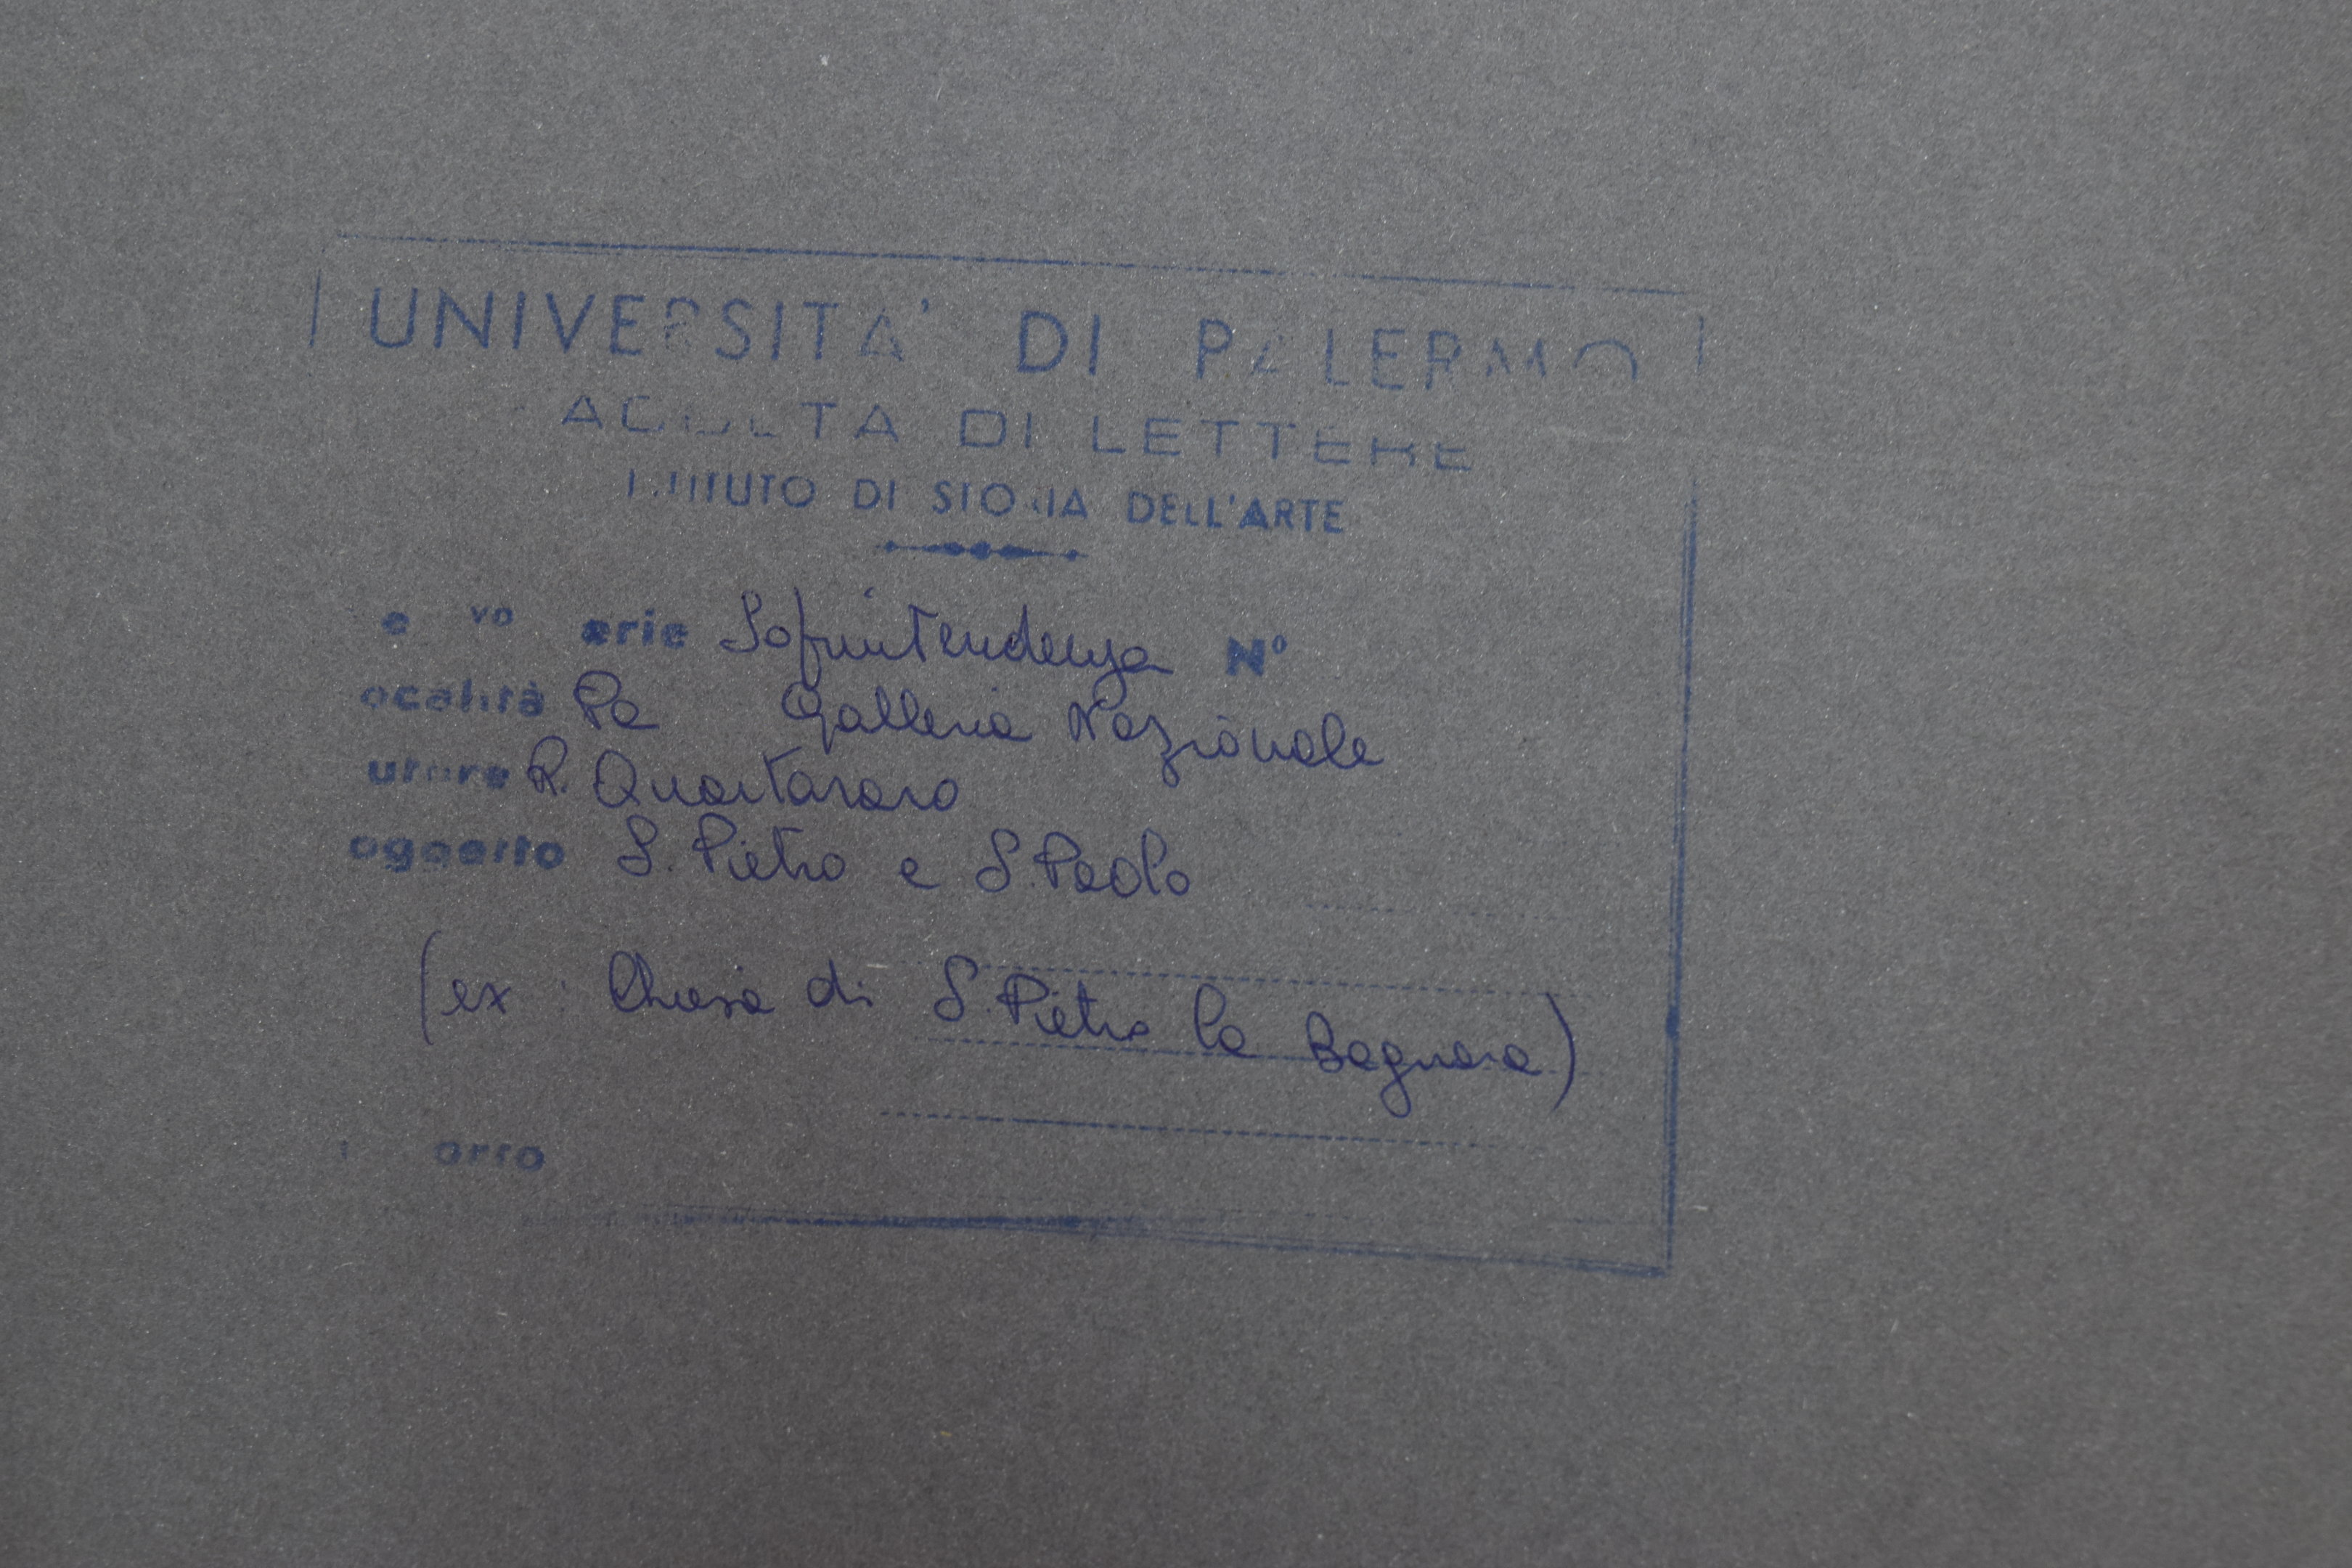 UNIVERSITA' DI PALERMO
ACOLTA DI LETTERE
ISTITUTO DI STORIA DELL'ARTE
erie Soprintendenza N°
ocalità Pa Galleria Nazionale
utore R. Quartararo
oggetto S. Pietro e S. Paolo
(ex : Chiesa di S. Pietro la Bagnara)